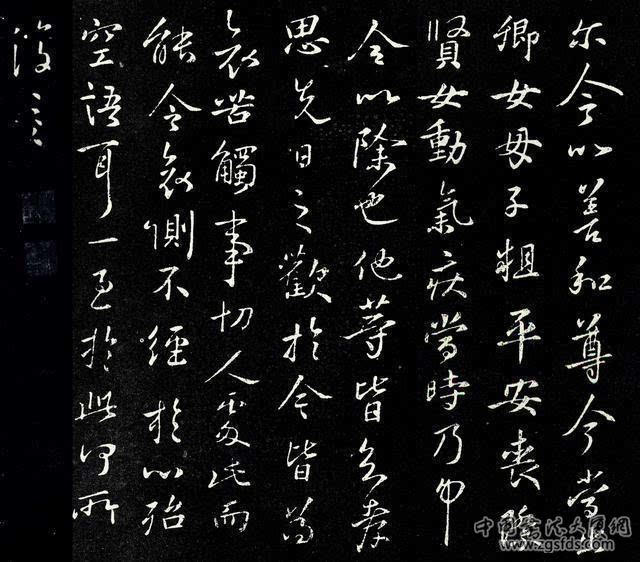 尔今以善和尊今當
卿女母子粗平安喪除
賢女動氣疾當時乃
今以除也他等皆
思先日之歡於今皆為
哀苦觸事切人處此而
能令哀惻不經於心殆
空語耳一至於此何所
復言
www.zgsfds.com